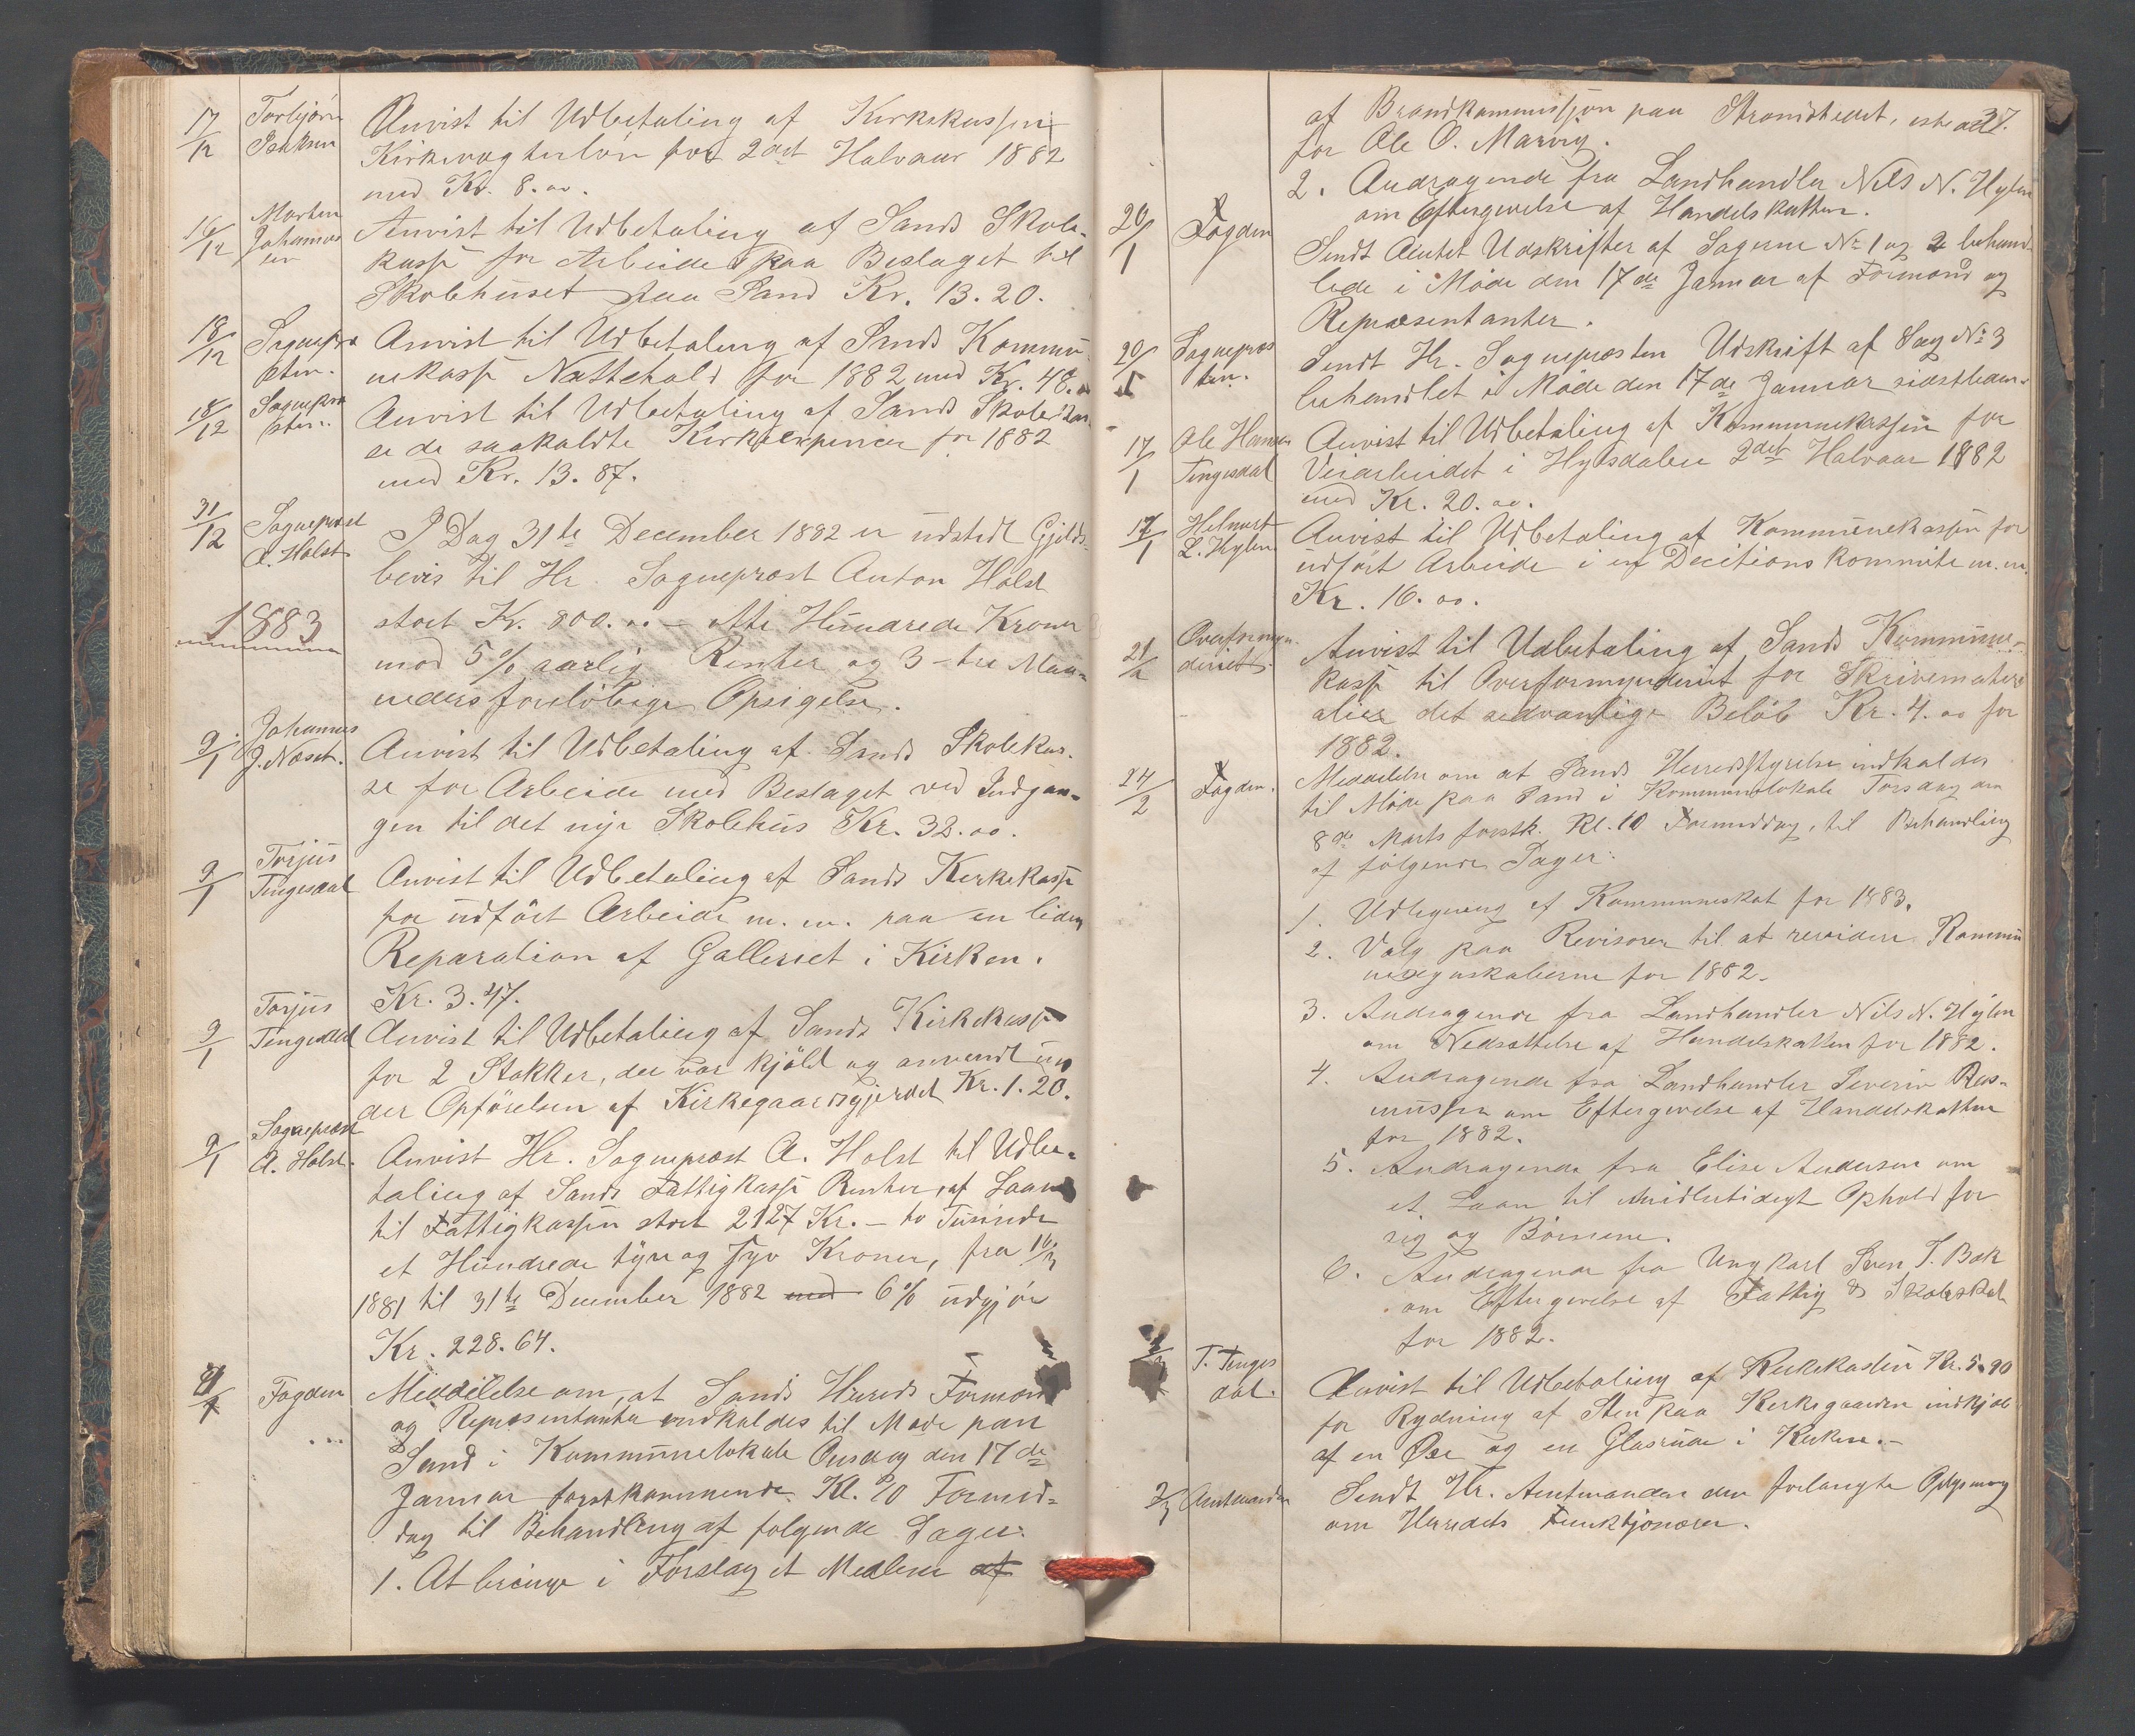 17/12 Torbjörn Anvist til Udbetaling af Kirkekassen
Isaksen Kirkevægterlön for 2det Halvaar 1882
med Kr. 8.00.
16/12 Morten Johannes Anvist til Udbetaling af Sands Skole-
sen kasse for Arbeide paa Beslaget til
Skolehuset paa Sand Kr. 13.20.
18/12 Sognepræ Anvist til Udbetaling af Sands Kommu-
sten. nekasse Nattehold for 1882 med Kr. 48.
18/12 Sognepræ Anvist til Udbetaling af Sands Skolekas-
sten. se de saakaldte Kirkeexpencer for 1882
med Kr. 13.87.
31/12 Sogneprest I Dag 31te December 1882 er udstedt Gjelds-
A. Holst bevis til Hr. Sogneprest Anton Holst
1883 stort Kr. 800.00 – Atte Hundrede Kroner
mod 5% aarlig Renter og 3-tre Maa-
neders foreløbige Opsigelse.
9/1 Johannes J. Næset. Anvist til Udbetaling af Sands Skolekas-
se for Arbeide med Beslaget ved Indgan-
gen til det nye Skolehus Kr. 32.00.
9/1 Torjus Tengesdal Anvist til Udbetaling af Sands Kirkekasse
for udfört Arbeide m.m. paa en liden
Reparation af Galleriet i Kirken.
Kr. 3.47.
9/1 Torjus Tengesdal Anvist til Udbetaling af Sands Kirkekasse
for 2 Stokker, der var kjöbt og anvendt un
der Opförelsen af Kirkegaardsgjerdet Kr. 1.20.
9/1 Sogneprest A. Holst. Anvist Hr. Sogneprest A. Holst til Udbe-
taling af Sands Fattigkasse Renter, af Laan
til Fattigkassen stort 2127 Kr. – to Tusinde
et Hundrede tyve og syv Kroner, fra
1881 til 31te December 1882 med 6% udgjör
Kr. 228.64.
Fogden Meddelelse om, at Sands Herreds Formænd
og Repræsentanter indkaldes til Møde paa
Sand i Kommunelokale Onsdag den 17de
Januar førstkommende Kl. 10 Formid-
dag til Behandling af følgende Sager:
1. At bringe i Forslag et Medlem af
37.
af Brandkommissjon paa Strandstedet,
for Ole O. Marvig.
2. Andragende fra Landhandler Nils N. Hylen
om Eftergivelse af Handelskatten.
20/1 Fogden Sendt Amtet Udskrifter af Sagerne No 1 og 2 behand-
lede i Møde den 17de Januar af Formænd og
Repræsentanter.
20/1 Sognepræs Sendt Hr. Sognepræsten Udskrift af Sag No 3
ten. behandlet i Møde den 17de Januar sidstleden.
17/1 Ole Hansen Anvist til Udbetaling af Kommunekassen for
Tengesdal Veiarbeidet i Hylsdalen 2det Halvaar 1882
med Kr. 20.00.
17/1 Helmert Anvist til Udbetaling af Kommunekassen for
L. Hylen. udført Arbeide i en Decitions kommite m.m.
Kr. 16.00.
21/2 Overformyn- Anvist til Udbetaling af Sands Kommune-
deriet. kasse til Overformynderiet for Skrivemateri
alier det sedvanlige Beløb Kr. 4.00 for
1882.
24/2 Fogden. Meddelelse om at Sands Herredsstyrelse indkaldes
til Møde paa Sand i Kommunelokale Torsdag den
8de Marts førstk. Kl. 10 Formiddag, til Behandling
af følgende Sager:
1. Udligning af Kommuneskat for 1883.
2. Valg paa Revisorer til at revidere Kommu
neregnskaberne for 1882.
3. Andragende fra Landhandler Nils N. Hylen
om Nedsættelse af Handelskatten for 1882.
4. Andragende fra Landhandler Severin Ras-
mussen om Eftergivelse af Handelskatten
for 1882.
5. Andragende fra Elise Andersen om
et Laan til midlertidigt Ophold for
sig og Børnene.
6. Andragende fra Ungkarl Sven T. Bak
om Eftergivelse af Fattig & Skoleskat
for 1882.
T. Tenges Anvist til Udbetaling af Kirkekassen Kr. 5.90
dal. for Rydning af Sten paa Kirkegaarden indkjøb
af en Øse og en Glasrude i Kirken.-
2/3 Amtmanden Sendt Hr. Amtmanden den forlangte Oplysning
om Herredets Funktjonærer.